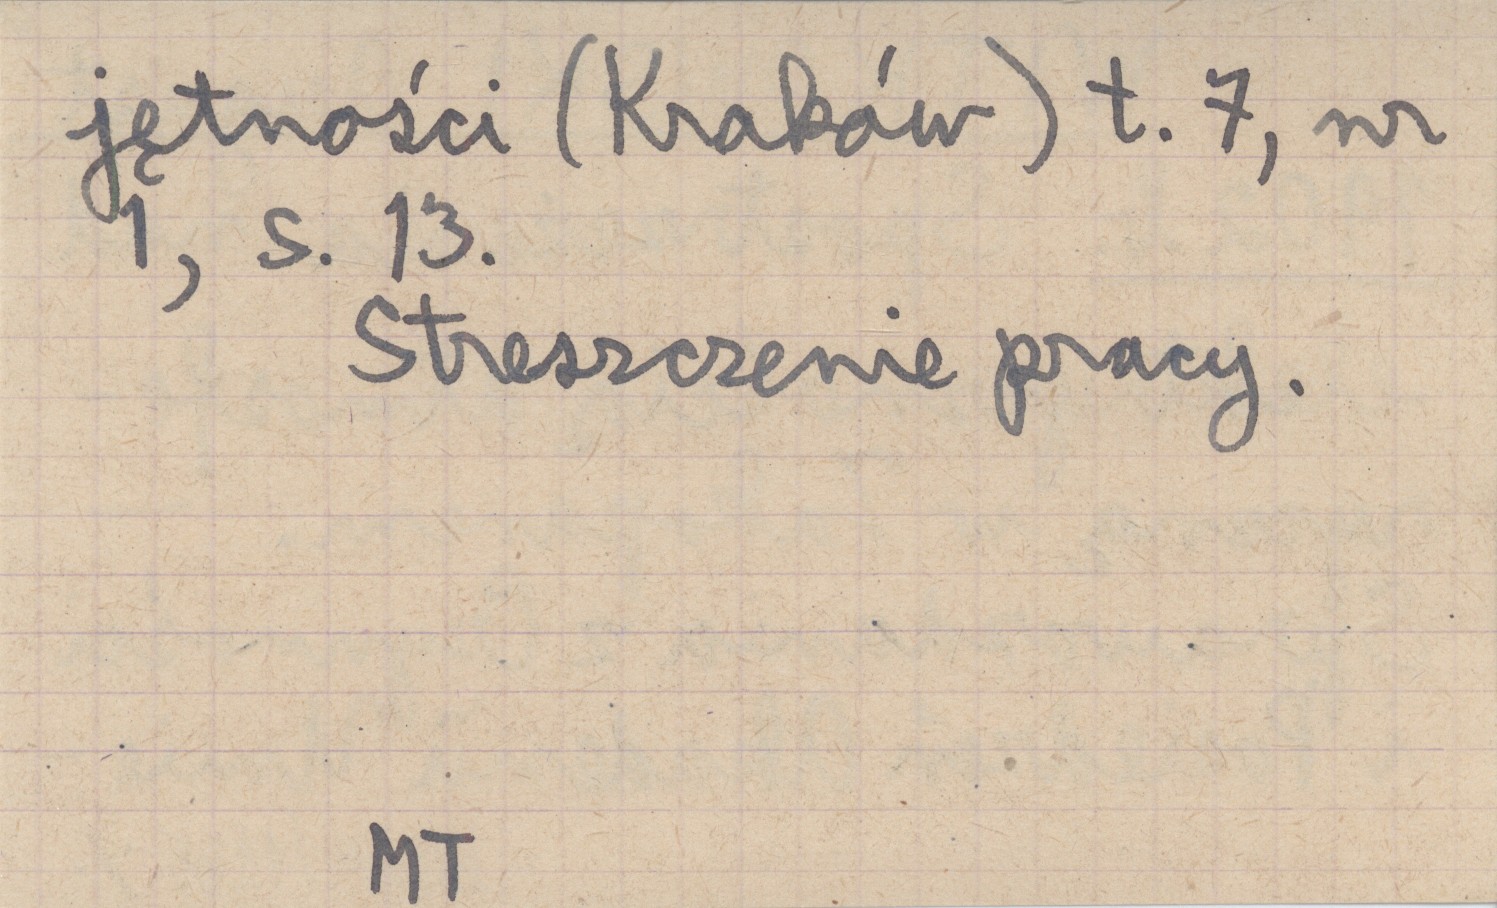 jętności (Kraków) t. 7, nr
1, s. 13.
Streszczenie pracy.
MT